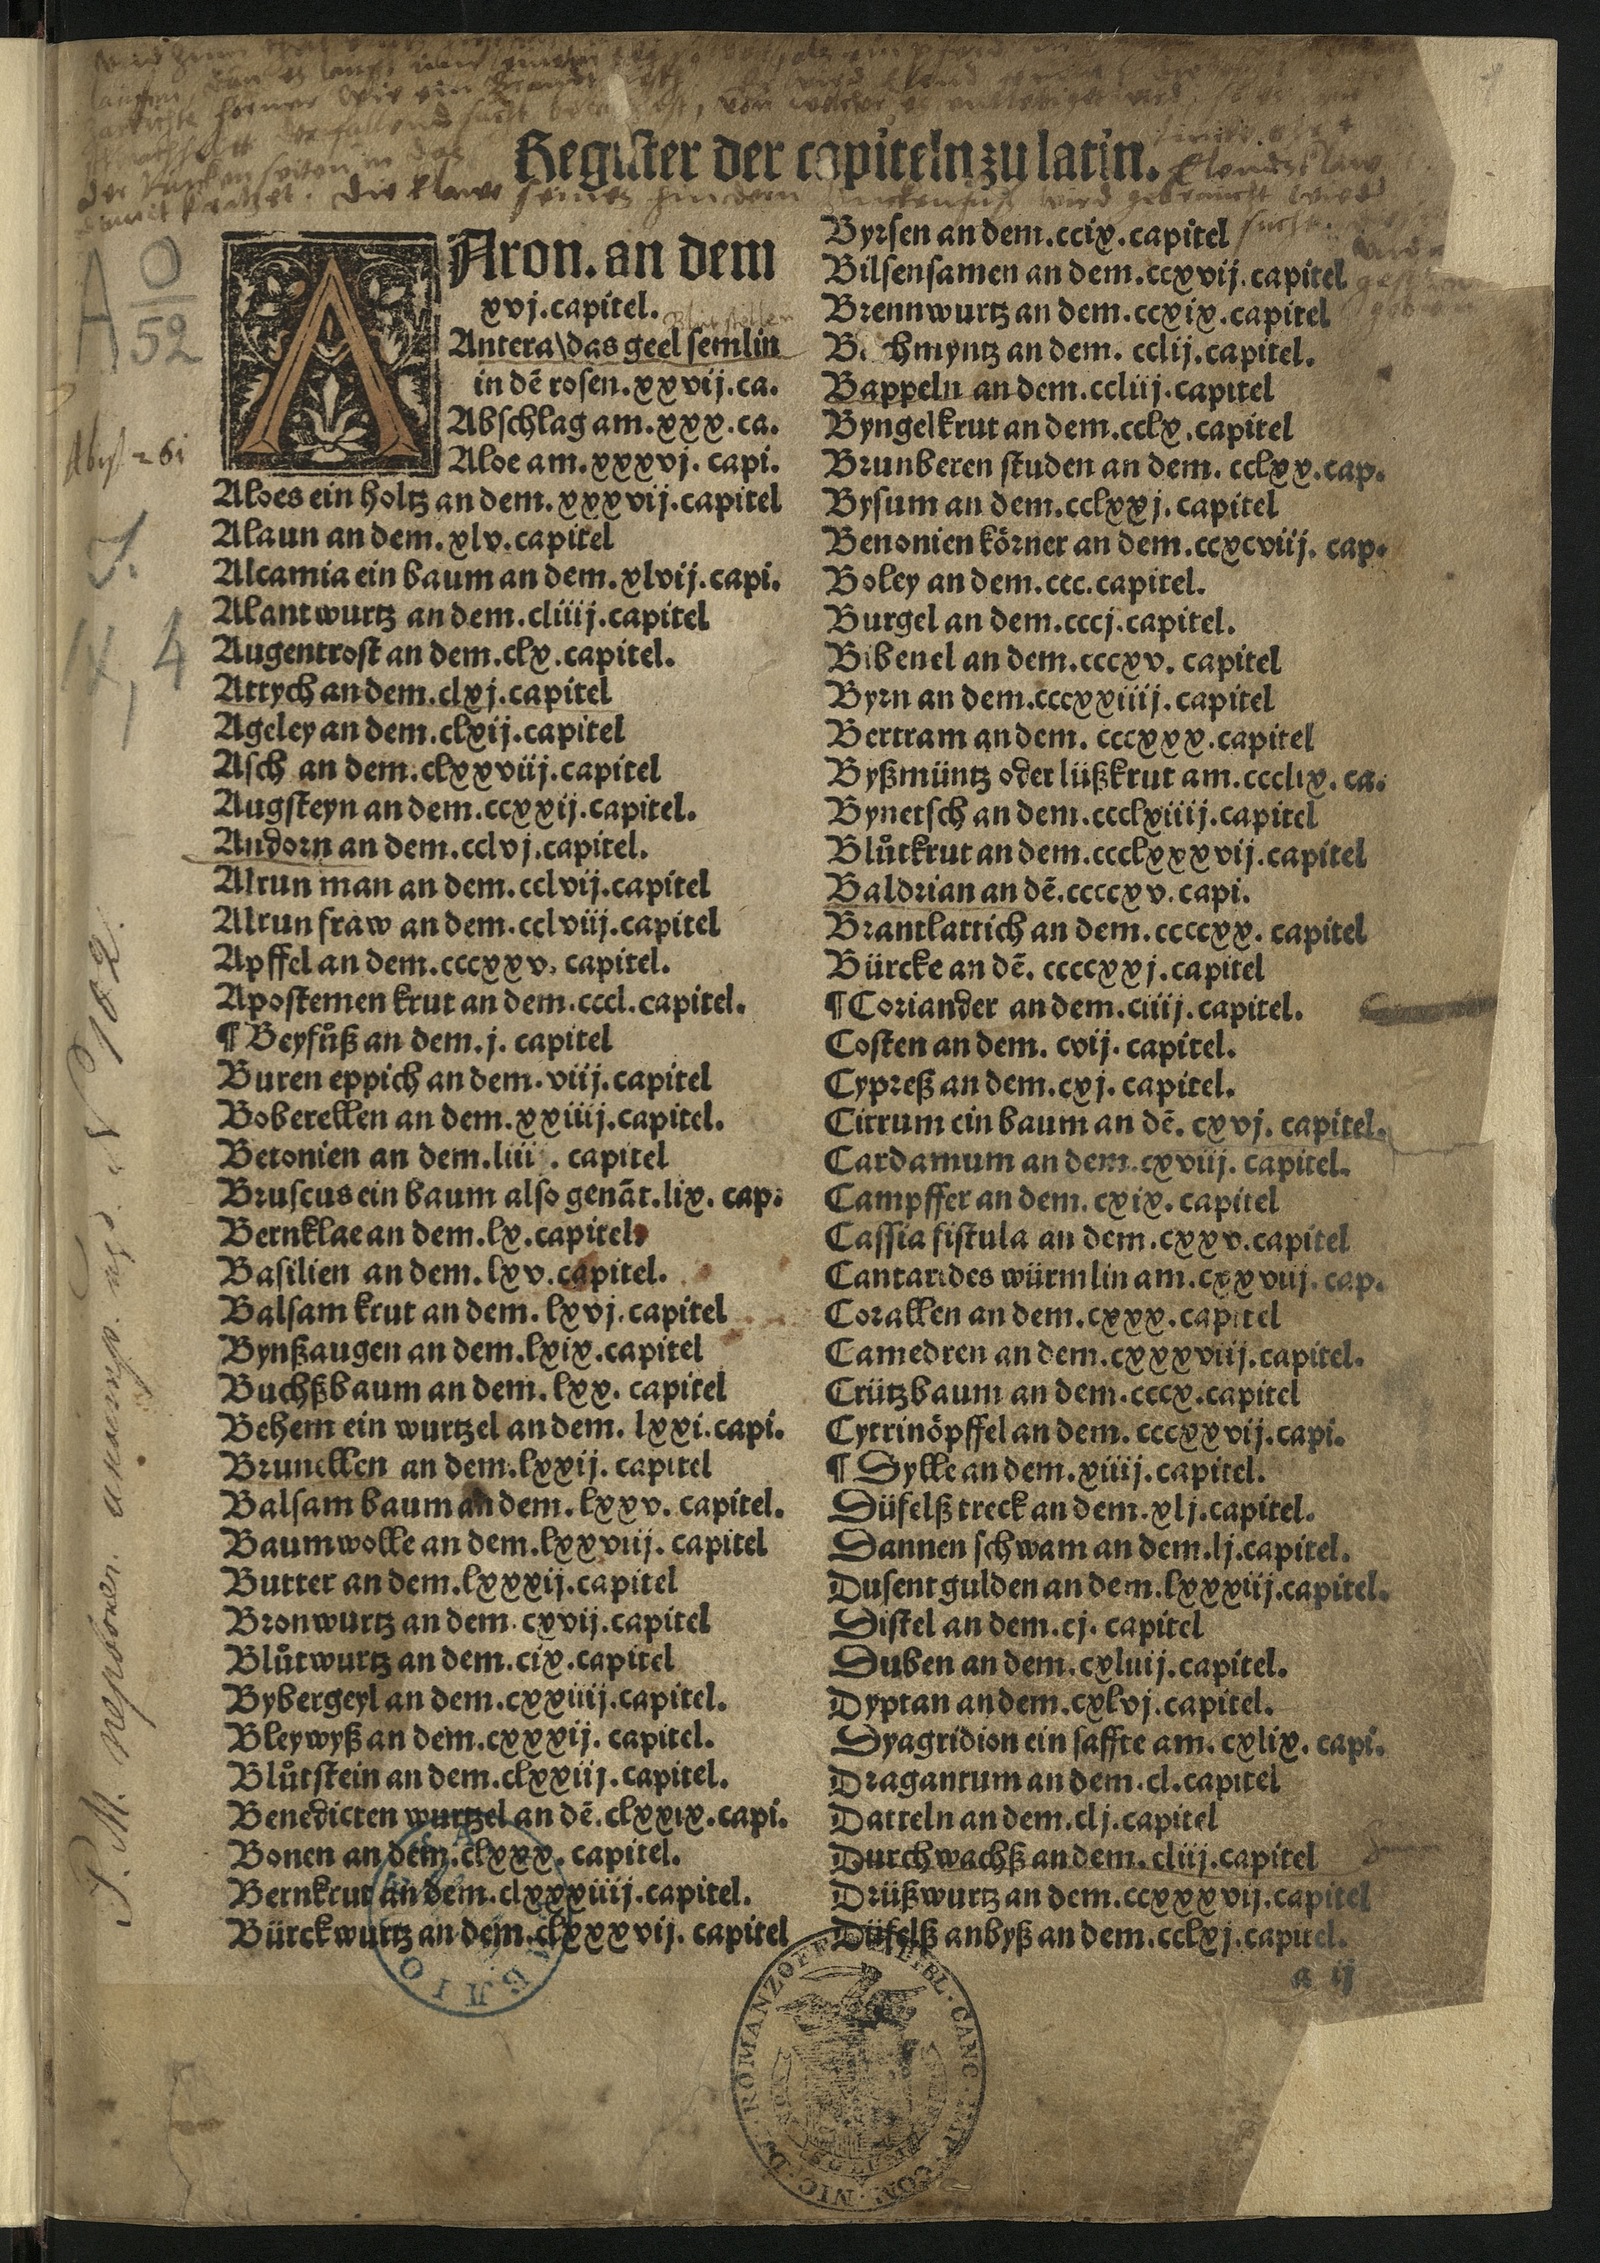 Register der capiteln zu latin.
AAron. an dem
xvj. capitel.
Antera\das geel semlin
in dē rosen. xxvij. ca.
Abschlag am. xxx. ca.
Aloe am. xxxvj. capi.
Aloes ein holtz an dem. xxxvij. capitel
Alaun an dem. xlv. capitel
Alcamia ein baum an dem. xlvij. capi.
Alantwurtz an dem. cliiij. capitel
Augentrost an dem. clx. capitel.
Attych an dem. clxj. capitel
Ageley an dem. clxij. capitel
Asch an dem. clxxviij. capitel
Augsteyn an dem. ccxxij. capitel.
Andorn an dem. cclvj. capitel.
Alrun man an dem. cclvij. capitel
Alrun fraw an dem. cclviij. capitel
Apffel an dem. cccxxv. capitel.
Apostemen krut an dem. cccl. capitel.
¶ Beyfůß an dem. j. capitel
Buren eppich an dem. viij. capitel
Boberellen an dem. xxiiij. capitel.
Betonien an dem. liii . capitel
Bruscus ein baum also genāt. lix. cap.
Bernklae an dem. lx. capitel.
Basilien an dem. lxv. capitel.
Balsam krut an dem. lxvj. capitel
Bynßaugen an dem. lxix. capitel
Buchßbaum an dem. lxx. capitel
Behem ein wurtzel an dem. lxxi. capi.
Brunellen an dem. lxxij. capitel
Balsam baum an dem. lxxv. capitel.
Baumwolle an dem. lxxviij. capitel
Butter an dem. lxxxij. capitel
Bronwurtz an dem. cxvij. capitel
Blůtwurtz an dem. cix. capitel
Bybergeyl an dem. cxxiiij. capitel.
Bleywyß an dem. cxxxij. capitel.
Blůtstein an dem. clxxiij. capitel.
Benedicten wurtzel an dē. clxxix. capi.
Bonen an dem. clxxx. capitel.
Bernkrut an dem. clxxxiiij. capitel.
Bürckwurtz an dem. clxxxvij. capitel
Byrsen an dem. ccix. capitel
Bilsensamen an dem. ccxvij. capitel
Brennwurtz an dem. ccxix. capitel
B hmyntz an dem. cclij. capitel.
Bappeln an dem. ccliij. capitel
Byngelkrut an dem. cclx. capitel
Brunberen studen an dem. cclxx. cap.
Bysum an dem. cclxxj. capitel
Benonien körner an dem. ccxcviij. cap.
Boley an dem. ccc. capitel.
Burgel an dem. cccj. capitel.
Bibenel an dem. cccxv. capitel
Byrn an dem. cccxxiiij. capitel
Bertram an dem. cccxxx. capitel
Byßmüntz oder lüßkrut am. ccclix. ca.
Bynetsch an dem. ccclxiiij. capitel
Blůtkrut an dem. ccclxxxvij. capitel
Baldrian an dē. ccccxv. capi.
Brantlattich an dem. ccccxx. capitel
Bürcke an dē. ccccxxj. capitel
¶ Coriander an dem. ciiij. capitel.
Costen an dem. cvij. capitel.
Cypreß an dem. cxj. capitel.
Citrum ein baum an dē. cxvj. capitel.
Cardamum an dem. cxviij. capitel.
Campffer an dem. cxix. capitel
Cassia fistula an dem. cxxv. capitel
Cantarides würmlin am. cxxviij. cap.
Corallen an dem. cxxx. capitel
Camedren an dem. cxxxviij. capitel.
Crützbaum an dem. cccx. capitel
Cytrinöpffel an dem. cccxxvij. capi.
¶ Dylle an dem. xiiij. capitel.
Düfelß treck an dem. xlj. capitel.
Dannen schwam an dem. lj. capitel.
Dusent gulden an dem. lxxxiij. capitel.
Distel an dem. cj. capitel
Duben an dem. cxluij. capitel.
Dyptan an dem. cxlvj. capitel.
Dyagridion ein saffte am. cxlix. capi.
Dragantum an dem. cl. capitel
Datteln an dem. clj. capitel
Durchwachß an dem. cliij. capitel
Drüßwurtz an dem. ccxxxvij. capitel
Düfelß anbyß an dem. cclxj. capitel.
a ij
A 0
52